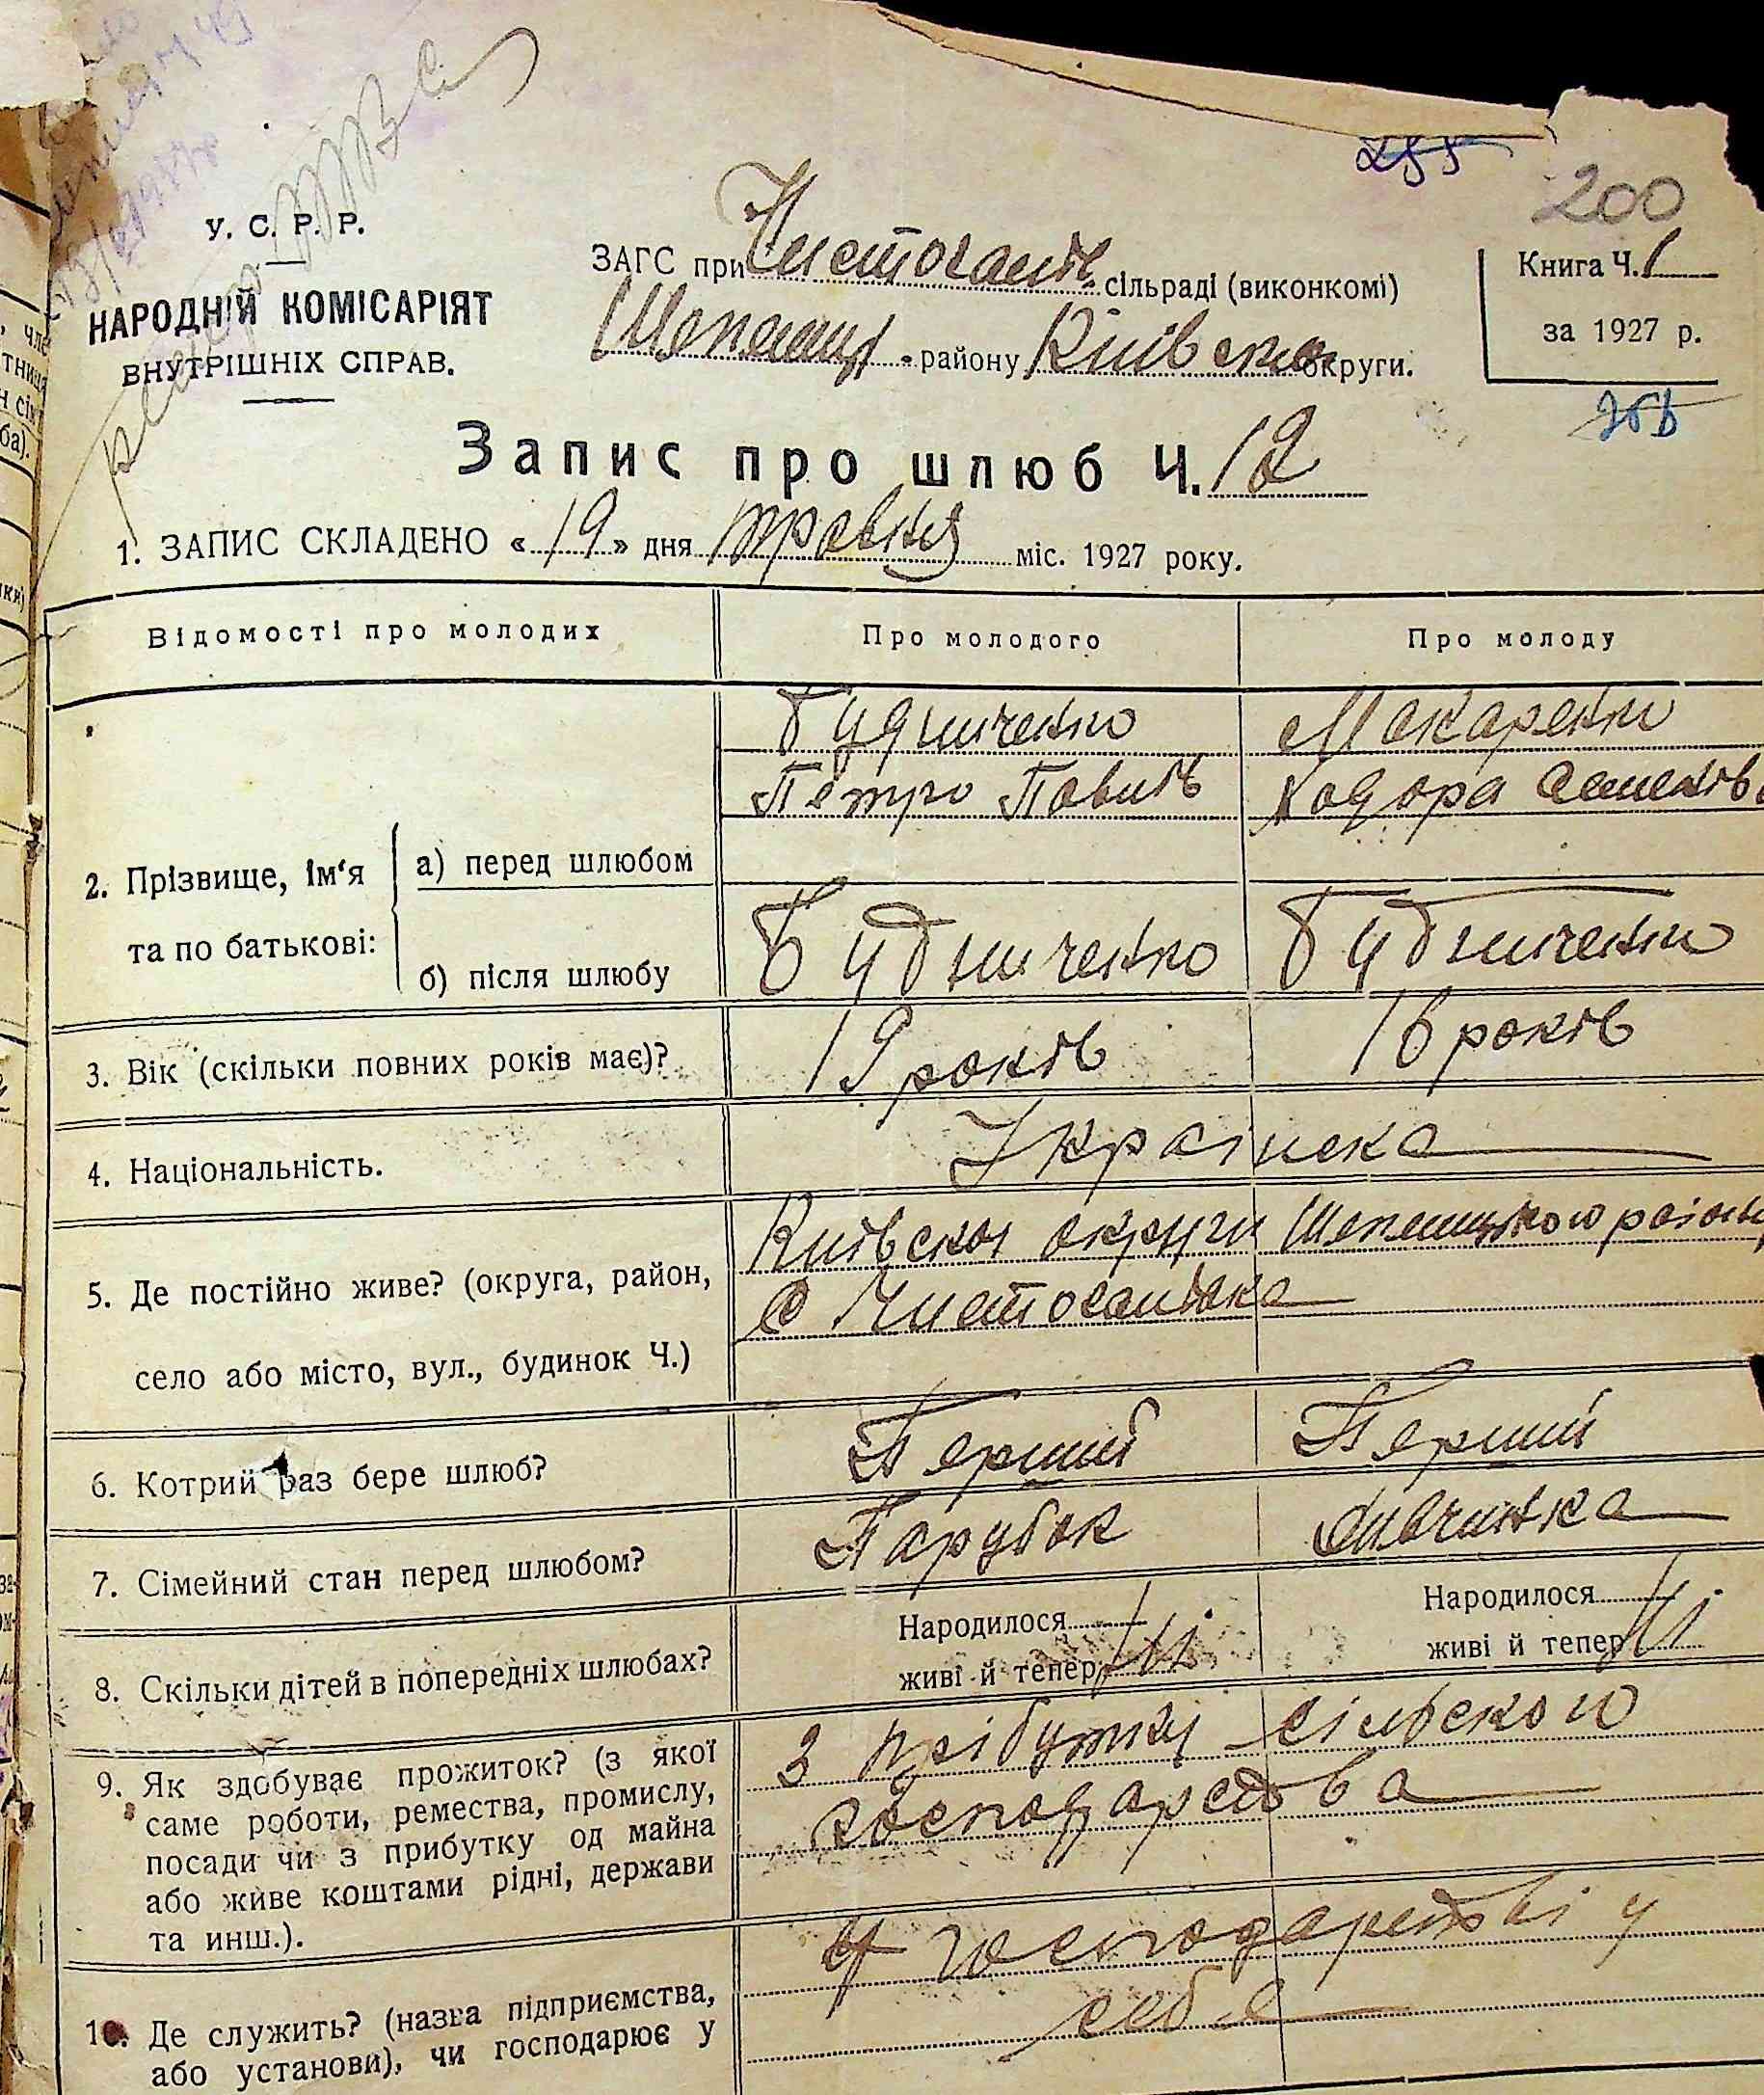 255
200
У. С. Р. Р.
НАРОДНІЙ КОМІСАРІЯТ
ВНУТРІШНІХ СПРАВ.
ЗАГС при Чистогалів. сільраді (виконкомі)
Шепелиц. району Київської округи.
Книга Ч. 1
за 1927 р.
Запис про шлюб Ч. 12
1. ЗАПИС СКЛАДЕНО «19» дня травня міс. 1927 року.
Відомості про молодих
Про молодого
Про молоду
2. Прізвище, ім'я та по батькові:
а) перед шлюбом
Будниченко
Петро Повлів
Макаренко
Ходора Семенівна
б) після шлюбу
Будниченко
Будниченко
3. Вік (скільки повних років має)?
19 років
18 років
4. Національність.
Українска
5. Де постійно живе? (округа, район,
село або місто, вул., будинок Ч.)
Київскої округи Шепелицького району
с Чистогалівка
6. Котрий раз бере шлюб?
Перший
Перший
7. Сімейний стан перед шлюбом?
Парубок
Дивчинка
8. Скільки дітей в попередніх шлюбах?
Народилося
живі й тепер
Народилося
живі й тепер
9. Як здобуває прожиток? (з якої
саме роботи, ремества, промислу,
посади чи з прибутку од майна
або живе коштами рідні, держави
та инш.).
З прібутку сільского
господарства
10. Де служить? (назва підприємства,
або установи), чи господарює у
У господарстві у
себе